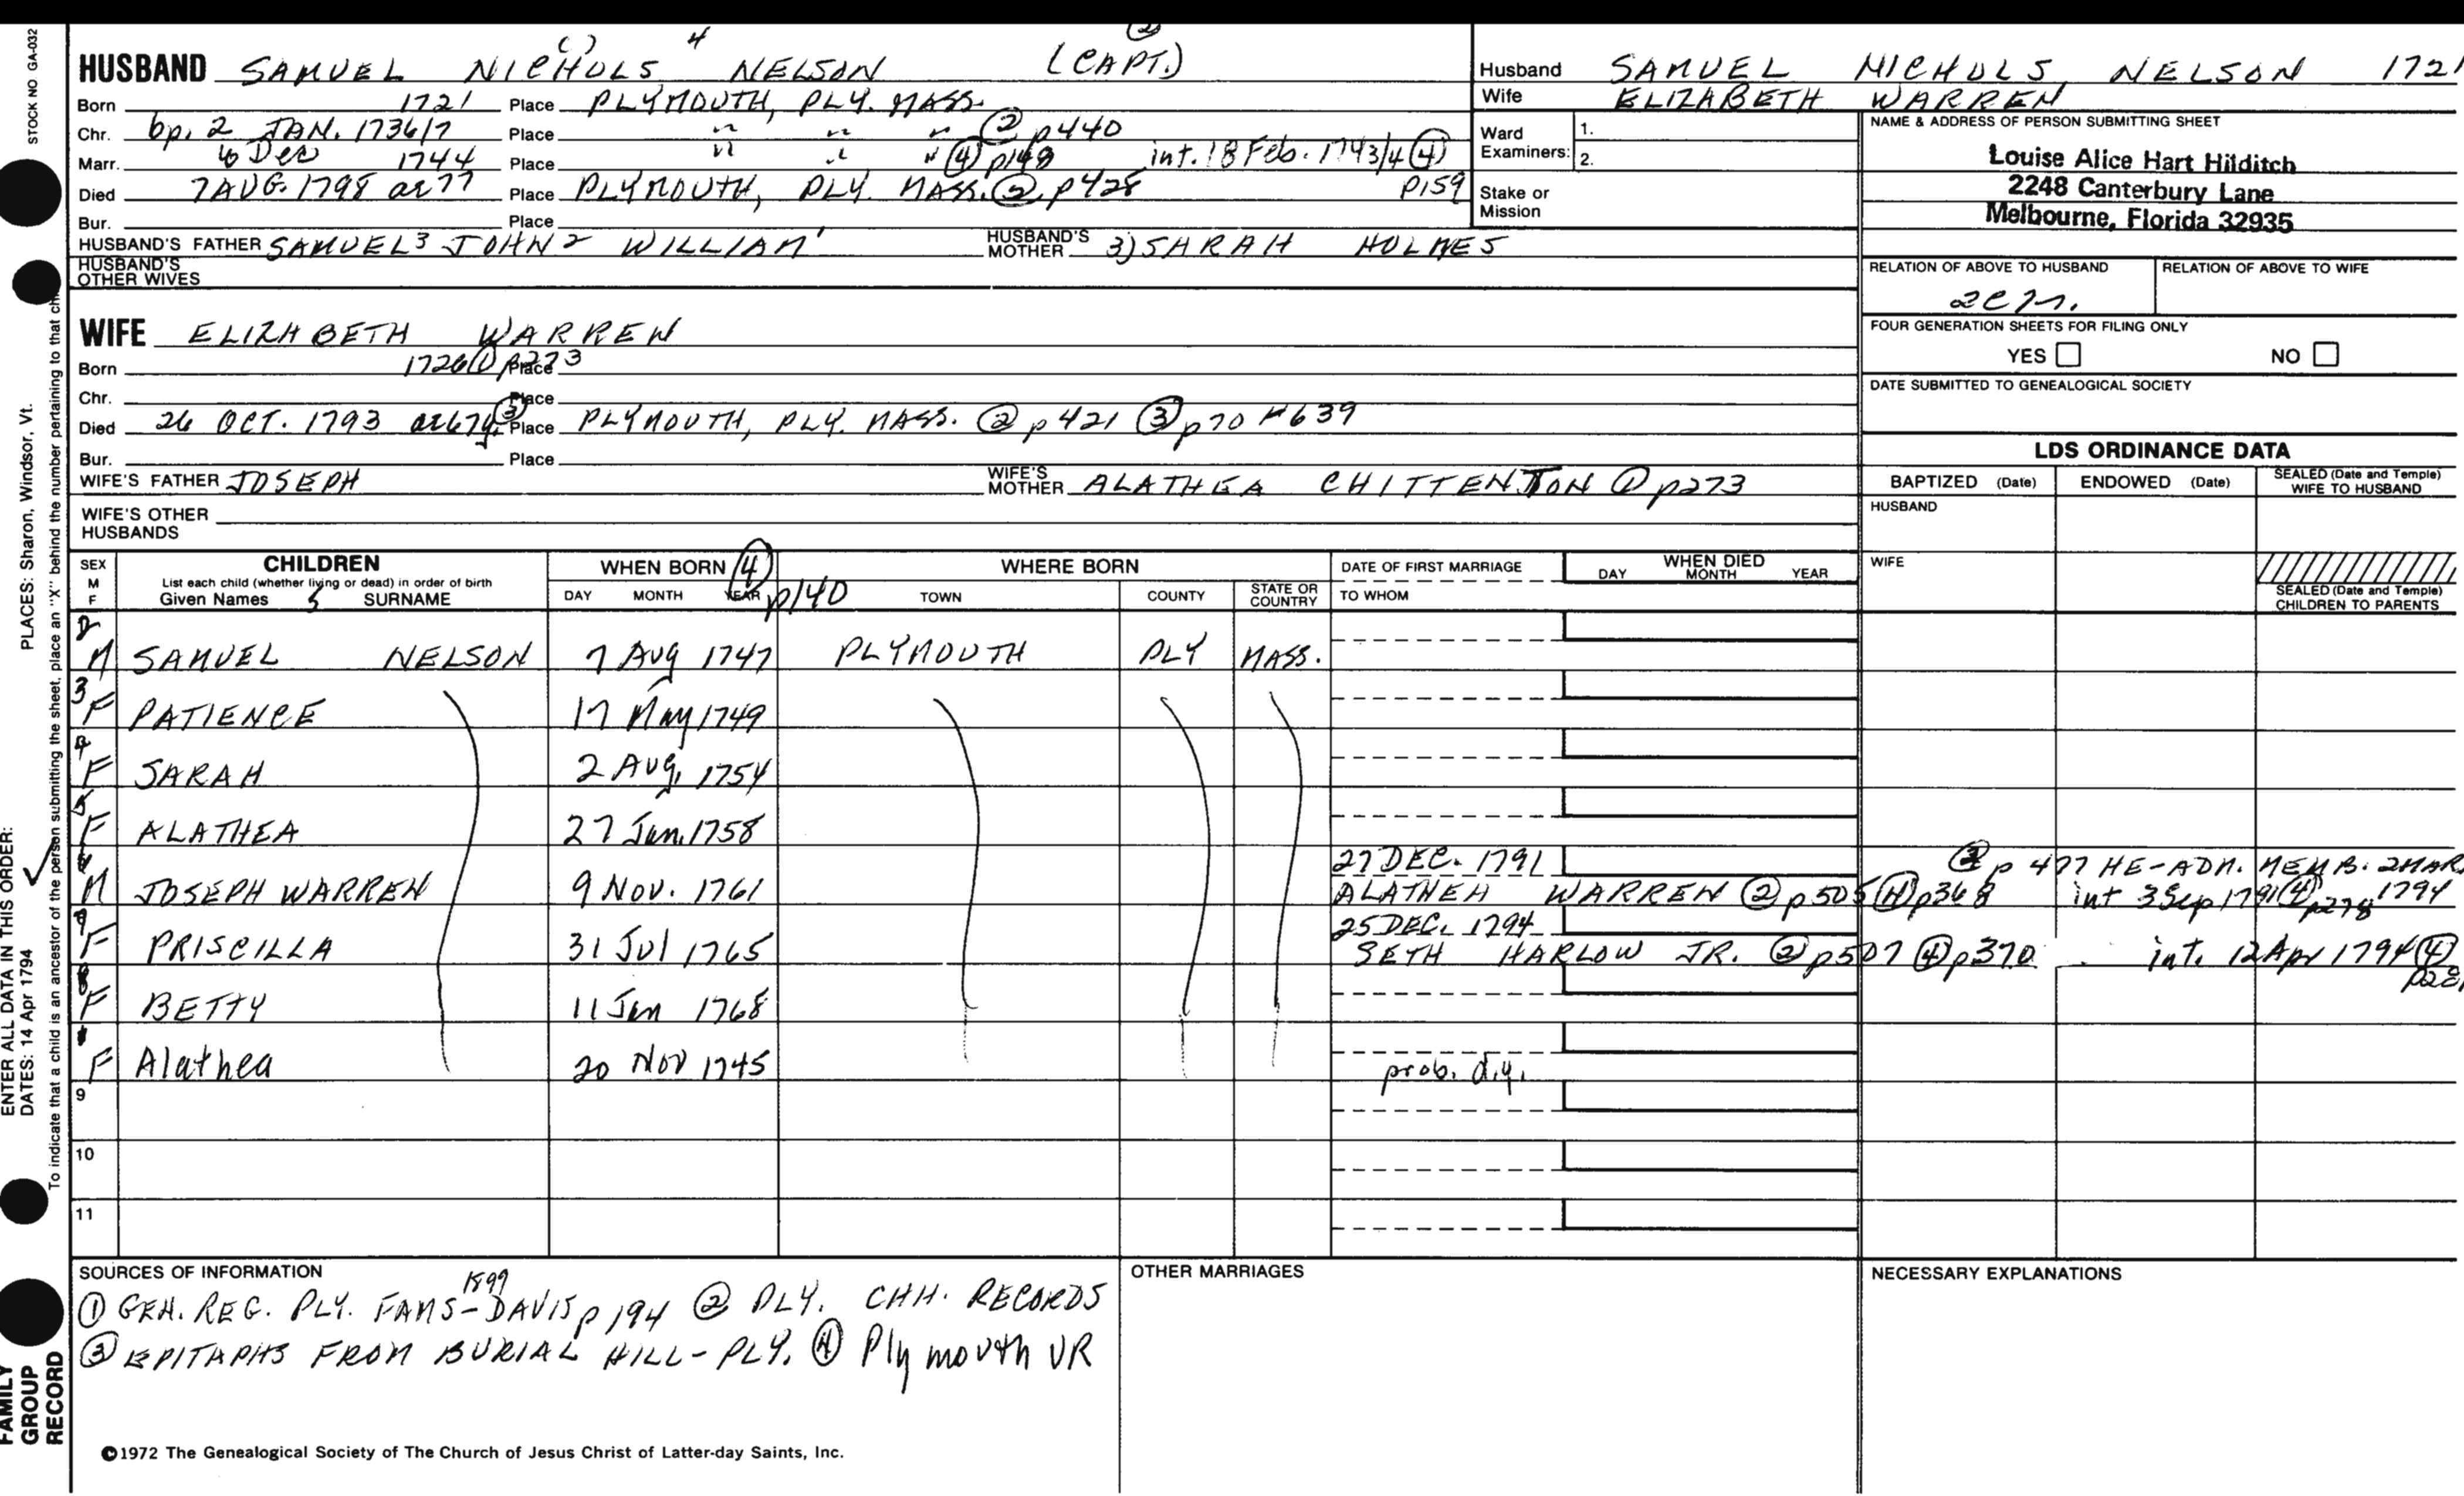 STOCK NO GA-032
PLACES: Sharon, Windsor, Vt.
ENTER ALL DATA IN THIS ORDER:
DATES: 14 Apr 1794
To indicate that a child is an ancestor of the person submitting the sheet, place an "X" behind the number pertaining to that ch
FAMILY
GROUP
RECORD
HUSBAND SAMUEL NICHOLS 4 NELSON (CAPT.) ②
Born 1721 Place PLYMOUTH, PLY. MASS.
Chr. bp. 2 JAN. 1736/7 Place " " " ② p440
Marr. 6 Dec 1744 Place " " " ④ p148 int. 18 Feb. 1743/4 ④ p159
Died 7 AUG. 1798 ae 77 Place PLYMOUTH, PLY. MASS. ② p428
Bur. Place
HUSBAND'S FATHER SAMUEL3 JOHN2 WILLIAM1 HUSBAND'S MOTHER 3) SARAH HOLMES
HUSBAND'S OTHER WIVES
WIFE ELIZABETH WARREN
Born 1726 ① p273 Place
Chr. Place
Died 26 OCT. 1793 ae 67y ③ Place PLYMOUTH, PLY. MASS. ② p421 ③ p70 #639
Bur. Place
WIFE'S FATHER JOSEPH WIFE'S MOTHER ALATHEA CHITTENTON ① p273
WIFE'S OTHER HUSBANDS
Husband SAMUEL NICHOLS NELSON 1721
Wife ELIZABETH WARREN
Ward Examiners: 1.
2.
Stake or Mission
NAME & ADDRESS OF PERSON SUBMITTING SHEET
Louise Alice Hart Hilditch
2248 Canterbury Lane
Melbourne, Florida 32935
RELATION OF ABOVE TO HUSBAND RELATION OF ABOVE TO WIFE
FOUR GENERATION SHEETS FOR FILING ONLY
YES NO
DATE SUBMITTED TO GENEALOGICAL SOCIETY
LDS ORDINANCE DATA
BAPTIZED (Date) ENDOWED (Date) SEALED (Date and Temple) WIFE TO HUSBAND
HUSBAND
WIFE
SEALED (Date and Temple) CHILDREN TO PARENTS
SEX M F CHILDREN WHEN BORN ④ p140 WHERE BORN DATE OF FIRST MARRIAGE WHEN DIED
List each child (whether living or dead) in order of birth
Given Names 5 SURNAME DAY MONTH YEAR TOWN COUNTY STATE OR COUNTRY TO WHOM DAY MONTH YEAR
2 M SAMUEL NELSON 7 Aug 1747 PLYMOUTH PLY MASS.
3 F PATIENCE 17 May 1749
4 F SARAH 2 Aug. 1754
5 F ALATHEA 27 Jan. 1758
27 DEC. 1791 ② p 477 HE-ADM. MEMB. 2 MAR. 1794
6 M JOSEPH WARREN 9 Nov. 1761 ALATHEA WARREN ② p505 ④ p368 int 3 Sep 1791 ④ p278
25 DEC. 1794
7 F PRISCILLA 31 Jul 1765 SETH HARLOW JR. ② p507 ④ p370 int. 12 Apr 1794 ④
8 F BETTY 11 Jan 1768
1 F Alathea 20 Nov 1745 prob. d.y.
9
10
11
SOURCES OF INFORMATION
① GEN. REG. PLY. FAMS - DAVIS 1899 p 194 ② PLY. CHH. RECORDS
③ EPITAPHS FROM BURIAL HILL - PLY. ④ Plymouth VR
OTHER MARRIAGES
NECESSARY EXPLANATIONS
©1972 The Genealogical Society of The Church of Jesus Christ of Latter-day Saints, Inc.